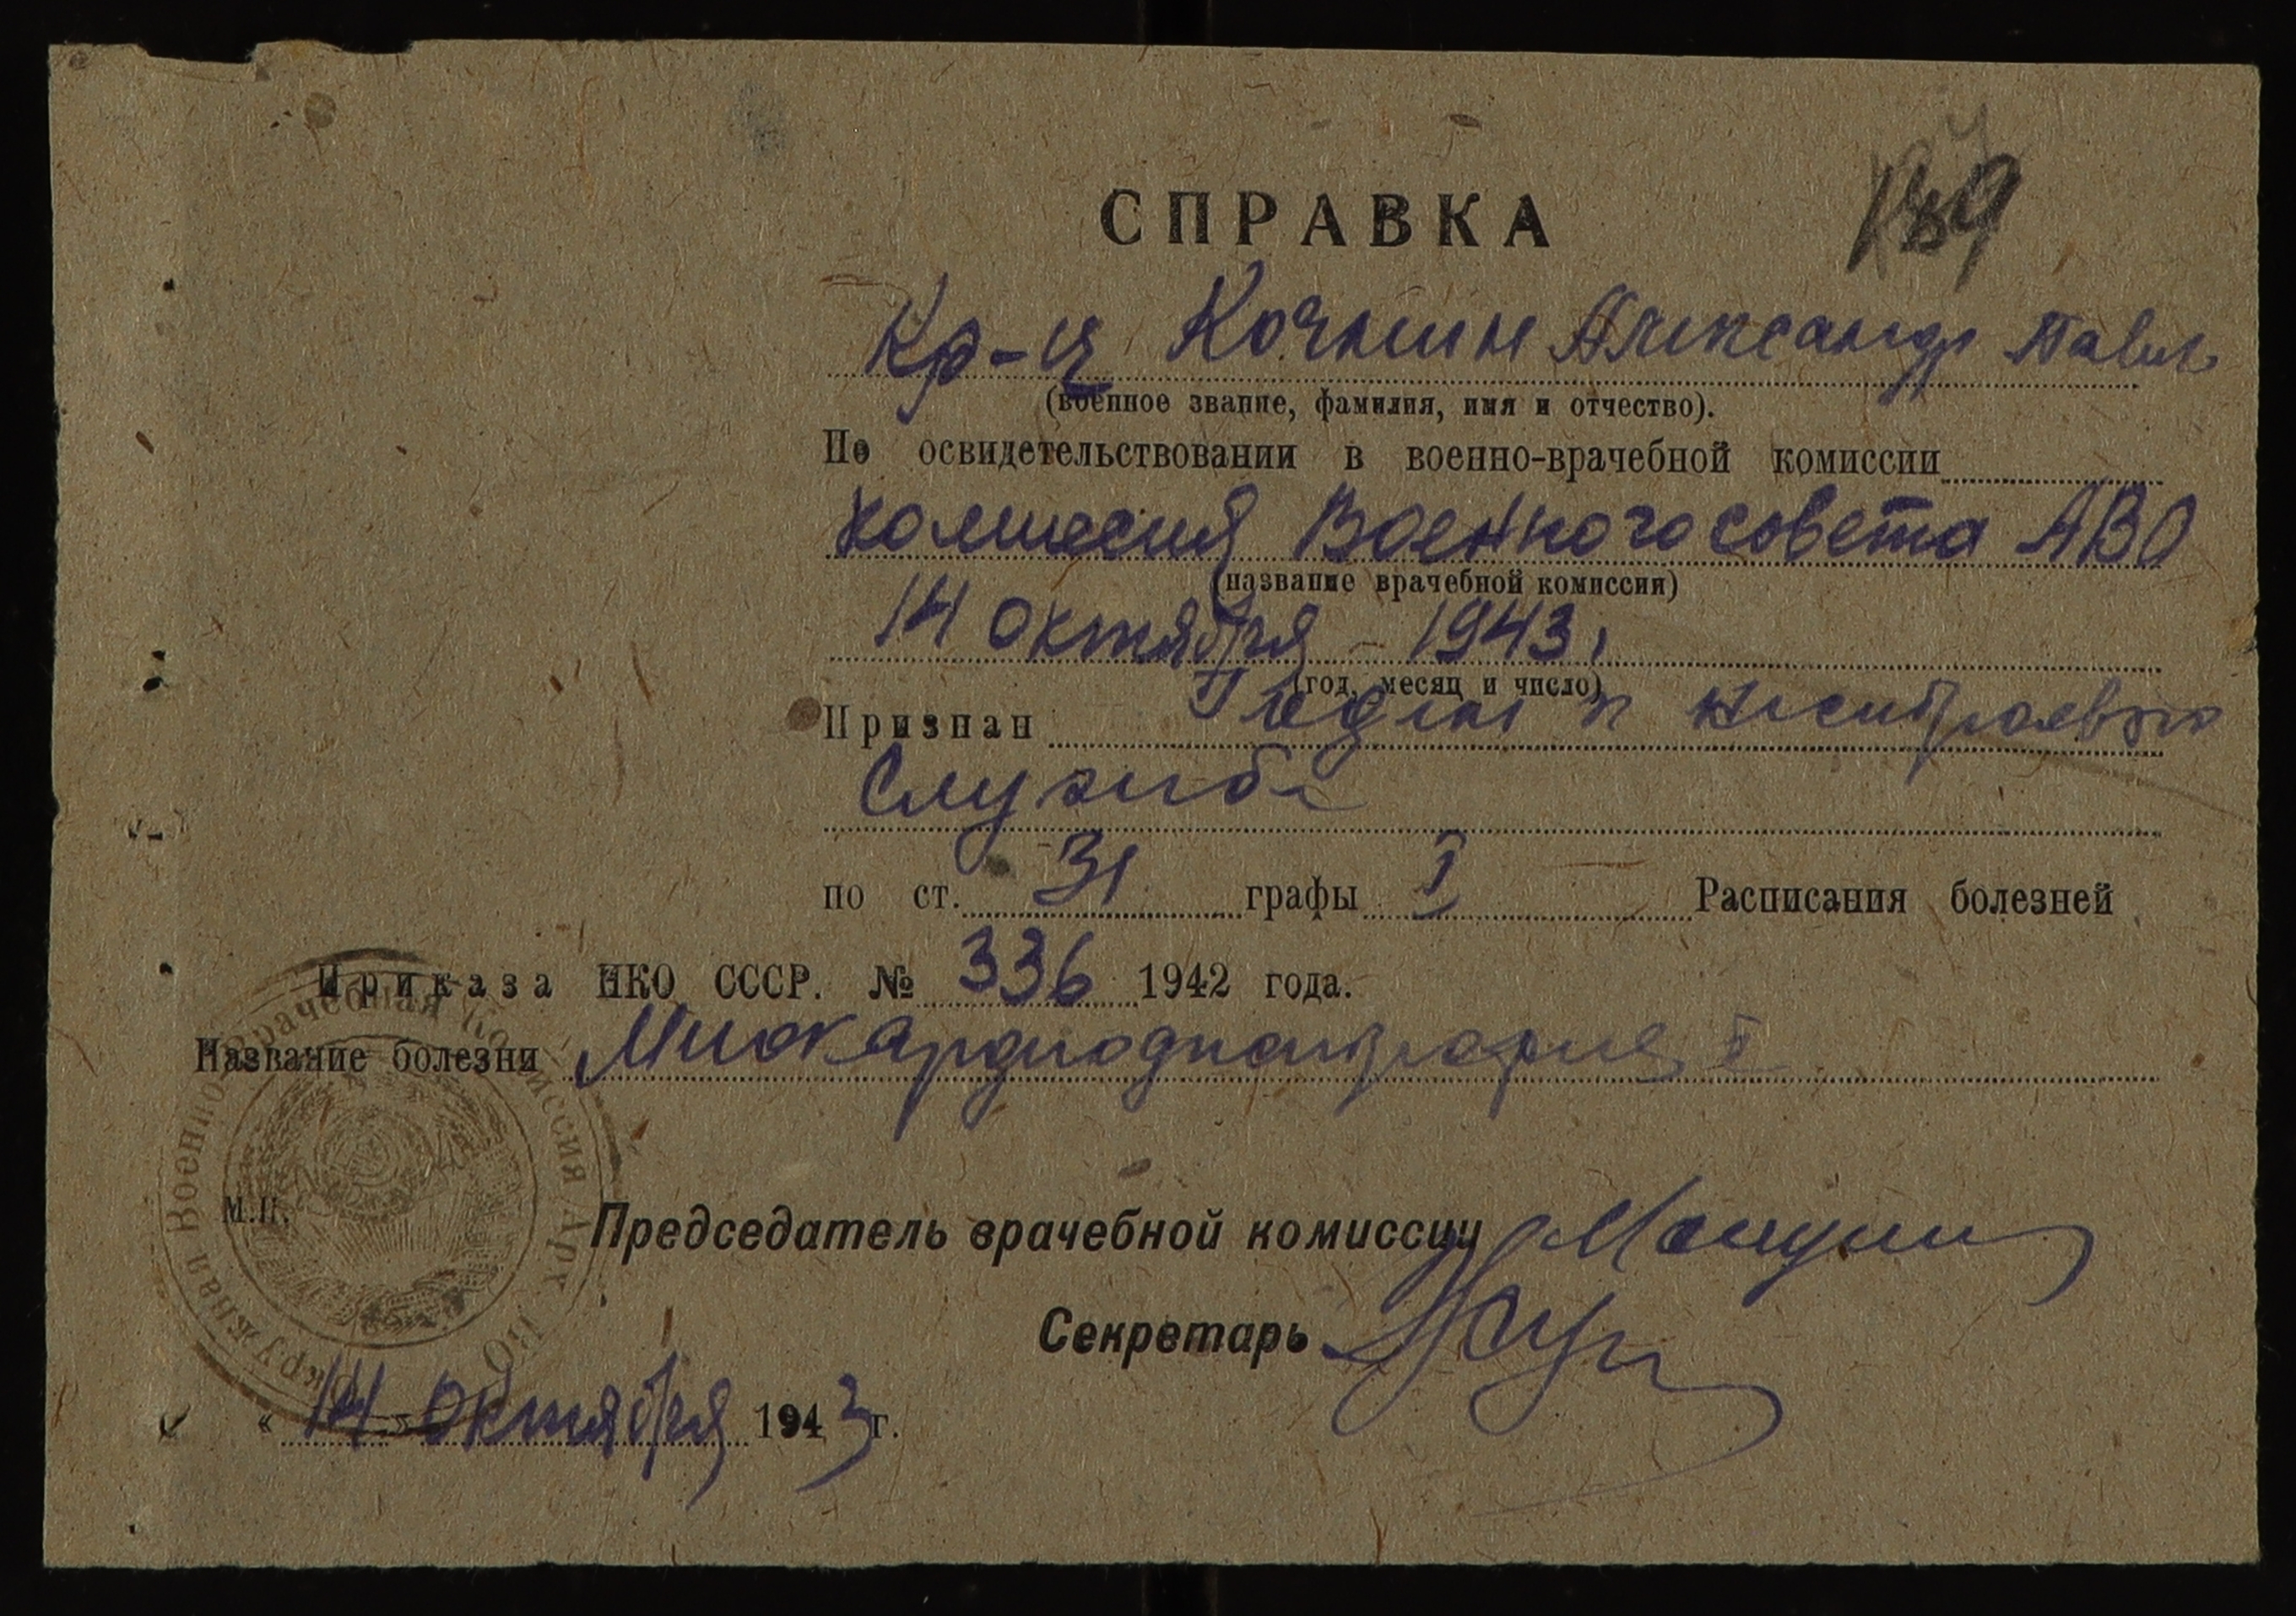 СПРАВКА
189
Кр-ц Кочнин Александр Павл
(военное звание, фамилия, имя и отчество).
По освидетельствовании в военно-врачебной комиссии
комиссия Военного совета АВО
(название врачебной комиссии)
14 октября - 1943,
(год, месяц и число)
Признан Годен к нестроевой
Службе
по ст. 31 графы I Расписания болезней
Приказа НКО СССР. № 336 1942 года.
Название болезни Миокардиодистрофия I
Окружная Военно-Врачебная Комиссия Арх ВО
М.П.
Председатель врачебной комиссии
Секретарь
« 14 » октября 1943 г.